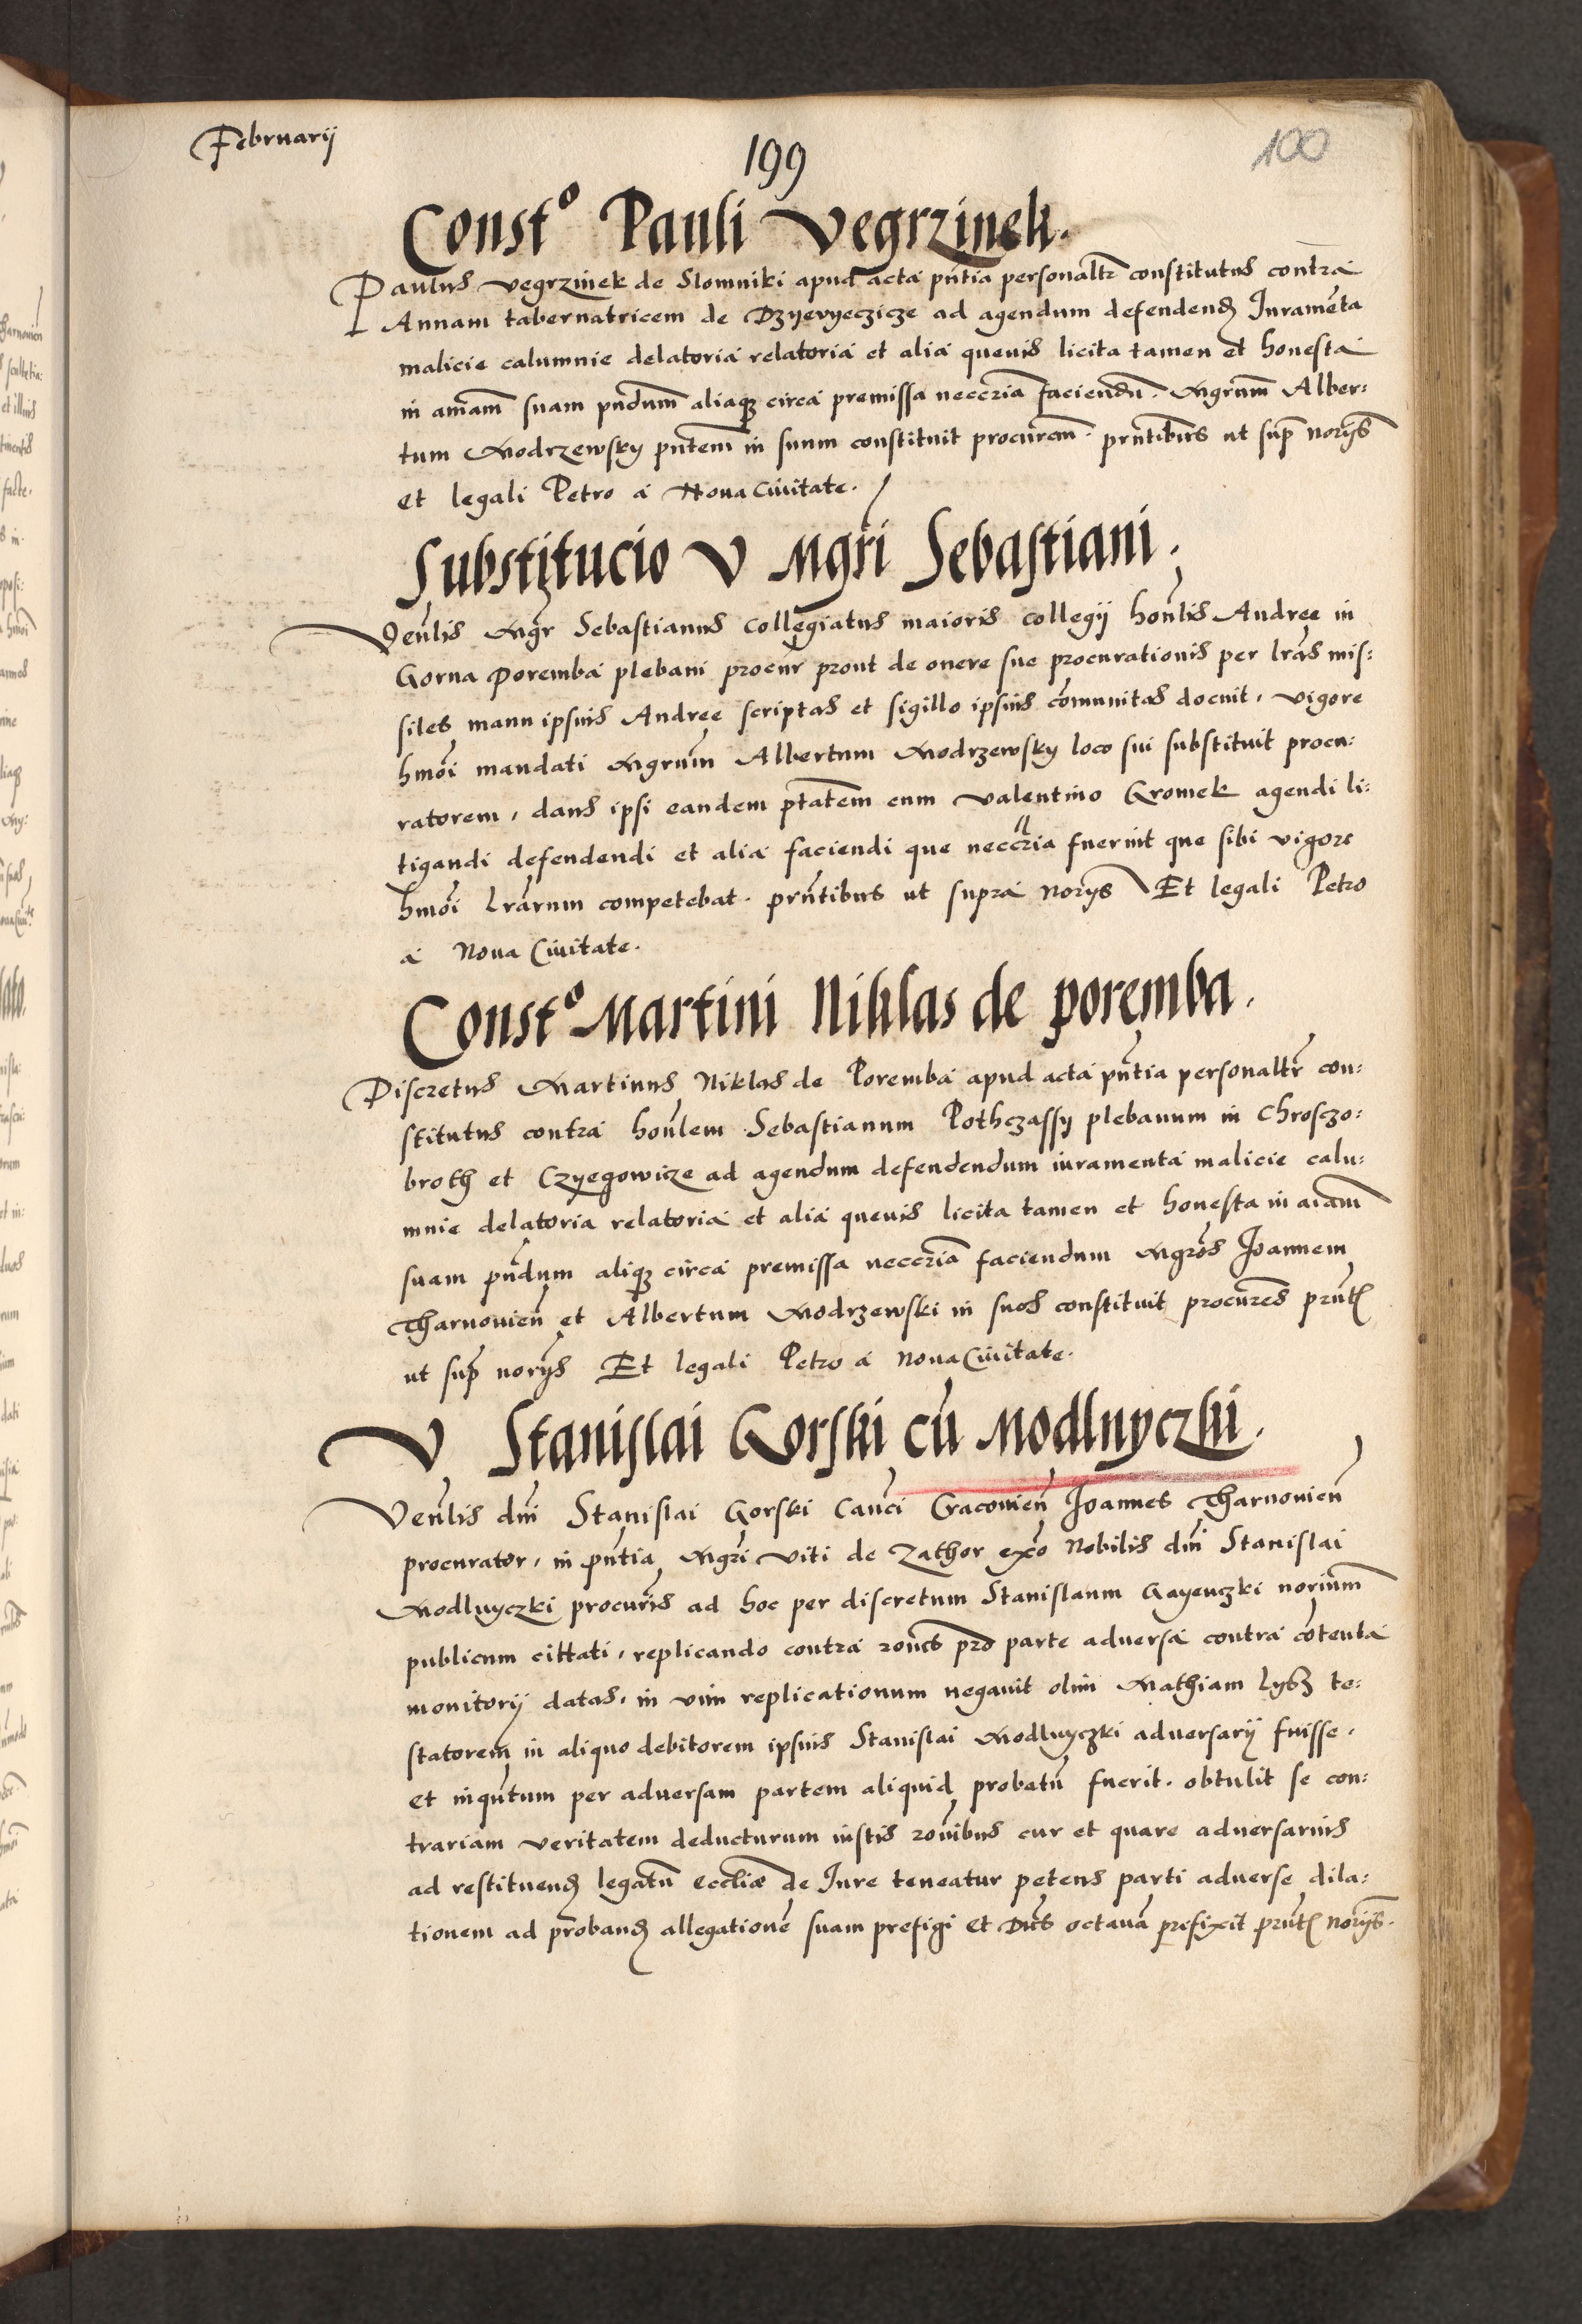 Februarij
199
100
Const° Pauli Vegrzinek.
Paulus Vegrzinek de Slomniki apud acta pñtia personaltr̃ constitutus contra
Annam tabernatricem de Dzyevyeczicze ad agendum defendend Iuramẽta
malicie calumnie delatoria relatoria et alia quevis licita tamen et honesta
in aniam̃ suam pñdum aliaqȝ circa premissa neccria faciendũ. Mgrum̃ Alber:
tum Modrzewsky pñtem in suum constituit procurem̃. prñtibus ut sup̃ norijs
et legali Petro a Nova Civitate.
Substitucio V Mgri Sebastiani.
Veñlis Mgr̃ Sebastianus collegiatus maioris collegij hoñlis Andree in
Gorna Poremba plebani procur̃ prout de onere sue procurationis per lr̃as mis:
siles manu ipsius Andree scriptas et sigillo ipsius cõmunitas docuit, vigore
hmõi mandati Mgrum̃ Albertum Modrzewsky loco sui substituit procu:
ratorem, dans ipsi eandem ptãtem cum Valentino Gromek agendi li:
tigandi defendendi et alia faciendi que neccr̃ia fuerint que sibi vigore
hmõi lr̃arum competebat. prñtibus ut supra norijs Et legali Petro
a Nova Civitate.
Const° Martini Niklas de Poremba.
Discretus Martinus Niklas de Poremba apud acta pñtia personaltr̃ con:
stitutus contra hoñlem Sebastianum Pothczassy plebanum in Chrosczo:
broth et Czyegowicze ad agendum defendendum iuramenta malicie calu:
mnie delatoria relatoria et alia quevis licita tamen et honesta in aiam̃
suam pñdum aliqȝ circa premissa neccria faciendum Mgros Joannem
Tharnovieñ et Albertum Modrzewski in suos constituit procures prñt
ut sup̃ norijs Et legali Petro a Nova Civitate.
V Stanislai Gorski cũ Modlnyczki.
Veñlis dñi Stanislai Gorski Cañci Cracovieñ Joannes Tharnovieñ
procurator, in pñtia Mgri Viti de Zathor exõ Nobilis dñi Stanislai
Modlnyczki procur̃is ad hoc per discretum Stanislaum Gayenczki norium̃
publicum cittati, replicando contra roñes pro parte adversa contra cõtenta
monitorij datas, in vim replicationum negavit olim Mathiam Lyss te:
statorem in aliquo debitorem ipsius Stanislai Modlnyczki adversarij fuisse.
et inqñtum per adversam partem aliquid probatũ fuerit. obtulit se con:
trariam veritatem deducturum iustis roñibus cur et quare adversarius
ad restituend legatũ eccliæ de Iure teneatur petens parti adverse dila:
tionem ad proband allegationẽ suam prefigi et Dñs octavã prefixit prñt norijs.